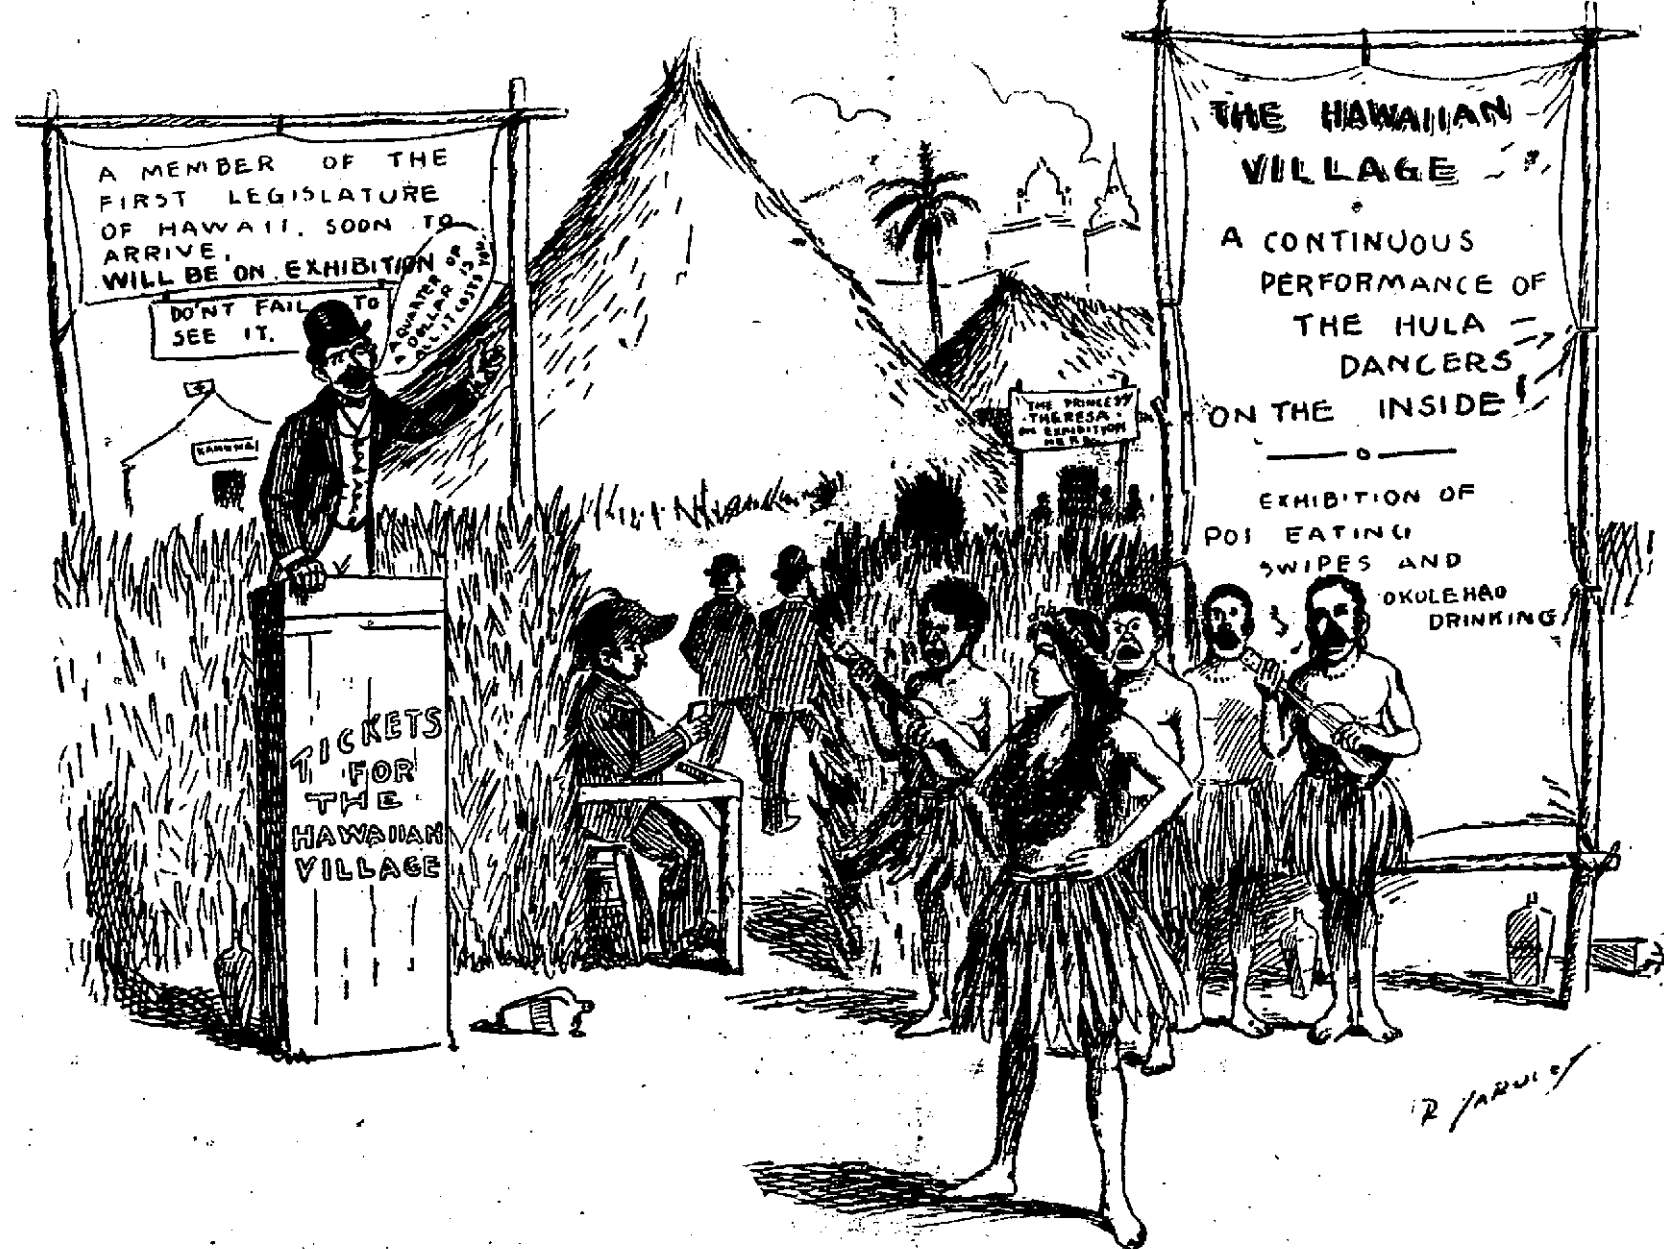 A MEMBER OF THE
FIRST LEGISLATURE
OF HAWAII. SOON TO
ARRIVE.
WILL BE ON EXHIBITION
DO'NT FAIL TO
SEE IT.
A QUARTER OF
A DOLLAR IS
ALL IT COSTS YOU.
KAHUNA
TICKETS
FOR
THE
HAWAIIAN
VILLAGE
THE PRINCESS
THERESA.
ON EXHIBITION
HERE
THE HAWAIIAN
VILLAGE
A CONTINUOUS
PERFORMANCE OF
THE HULA
DANCERS
ON THE INSIDE!
EXHIBITION OF
POI EATING
SWIPES AND
OKOLEHAO
DRINKING